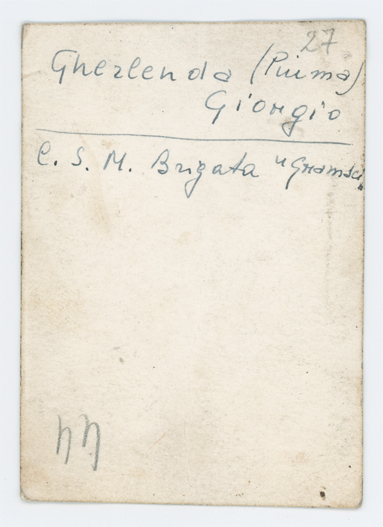 27
Gherlenda (Piuma)
Giorgio
C. S. M. Brigata "Gramsci"